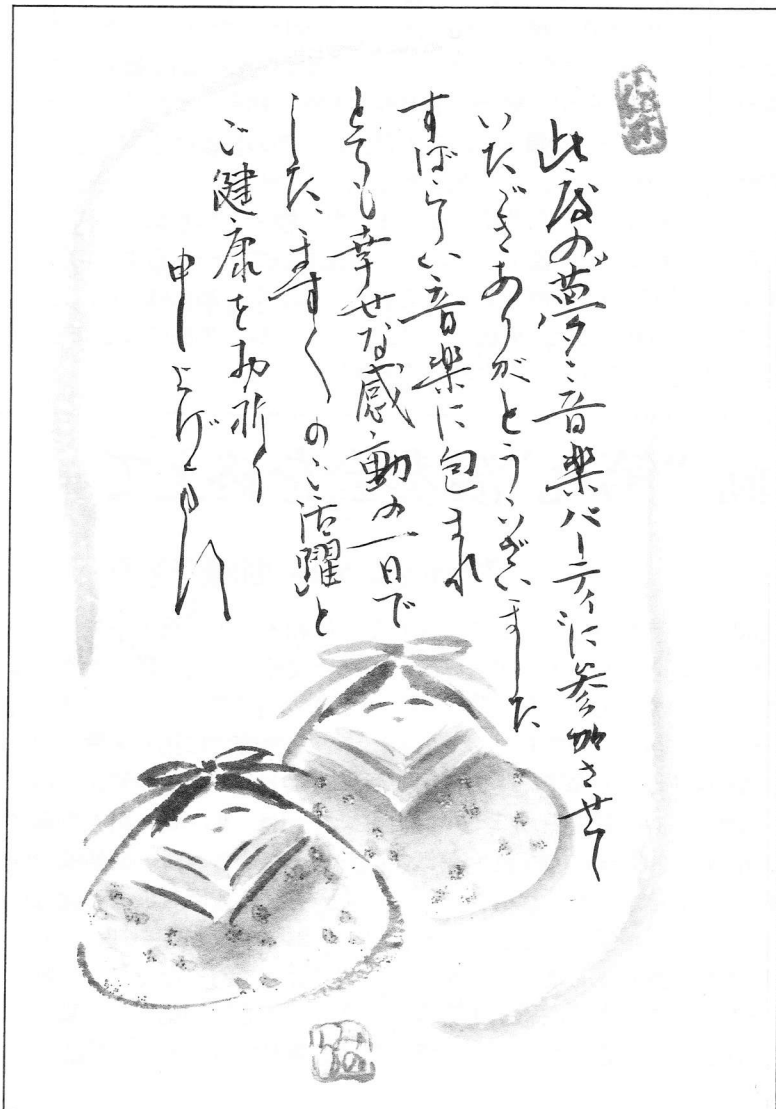 此度の夢・音楽パーティに参加させて
いただきありがとうございました
すばらしい音楽に包まれ
とても幸せな感動の一日で
した、ますますのご活躍と
ご健康をお祈り
申し上げます